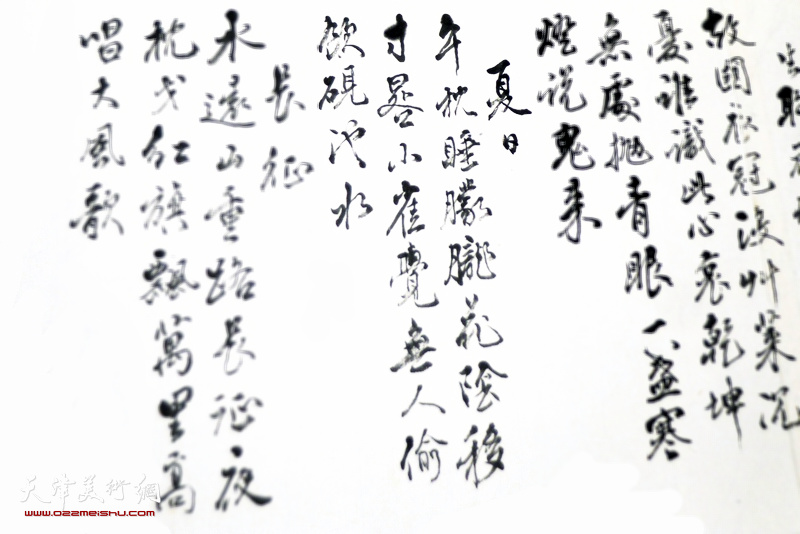 故国衣冠没草莱沉
忧谁识此心哀乾坤
无处抛青眼一盏寒
灯说鬼来
夏日
午枕睡朦朧花陰移
寸晷小雀覺無人偷
飲硯池水
長征
永遠山重路長征夜
枕戈紅旗飄萬里高
唱大風歌
天津美術網
www.022meishu.com